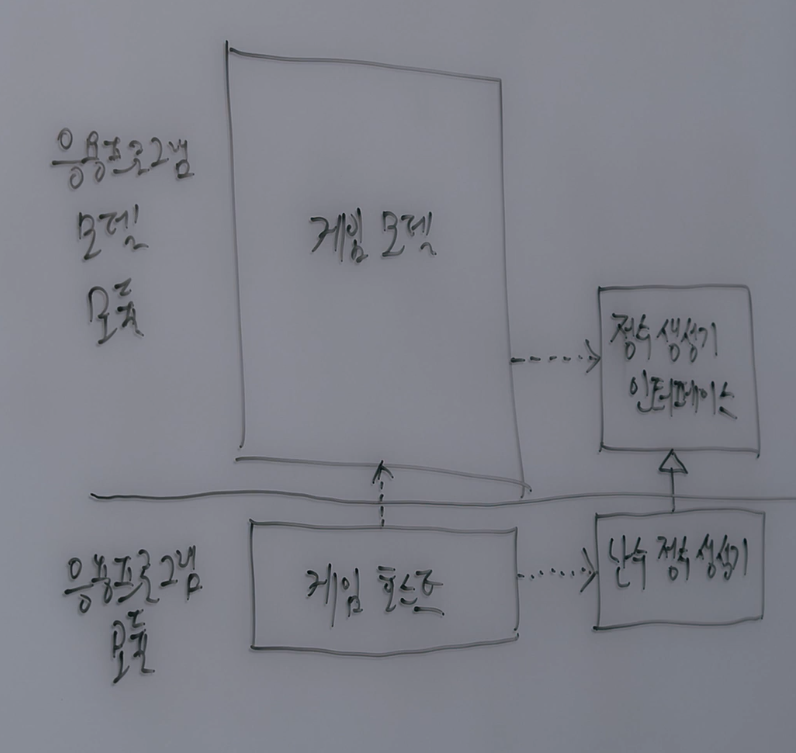 응용프로그램
모델
모듈
게임 모델
정수 생성기
인터페이스
응용프로그램
모듈
게임 호스트
난수 정수 생성기